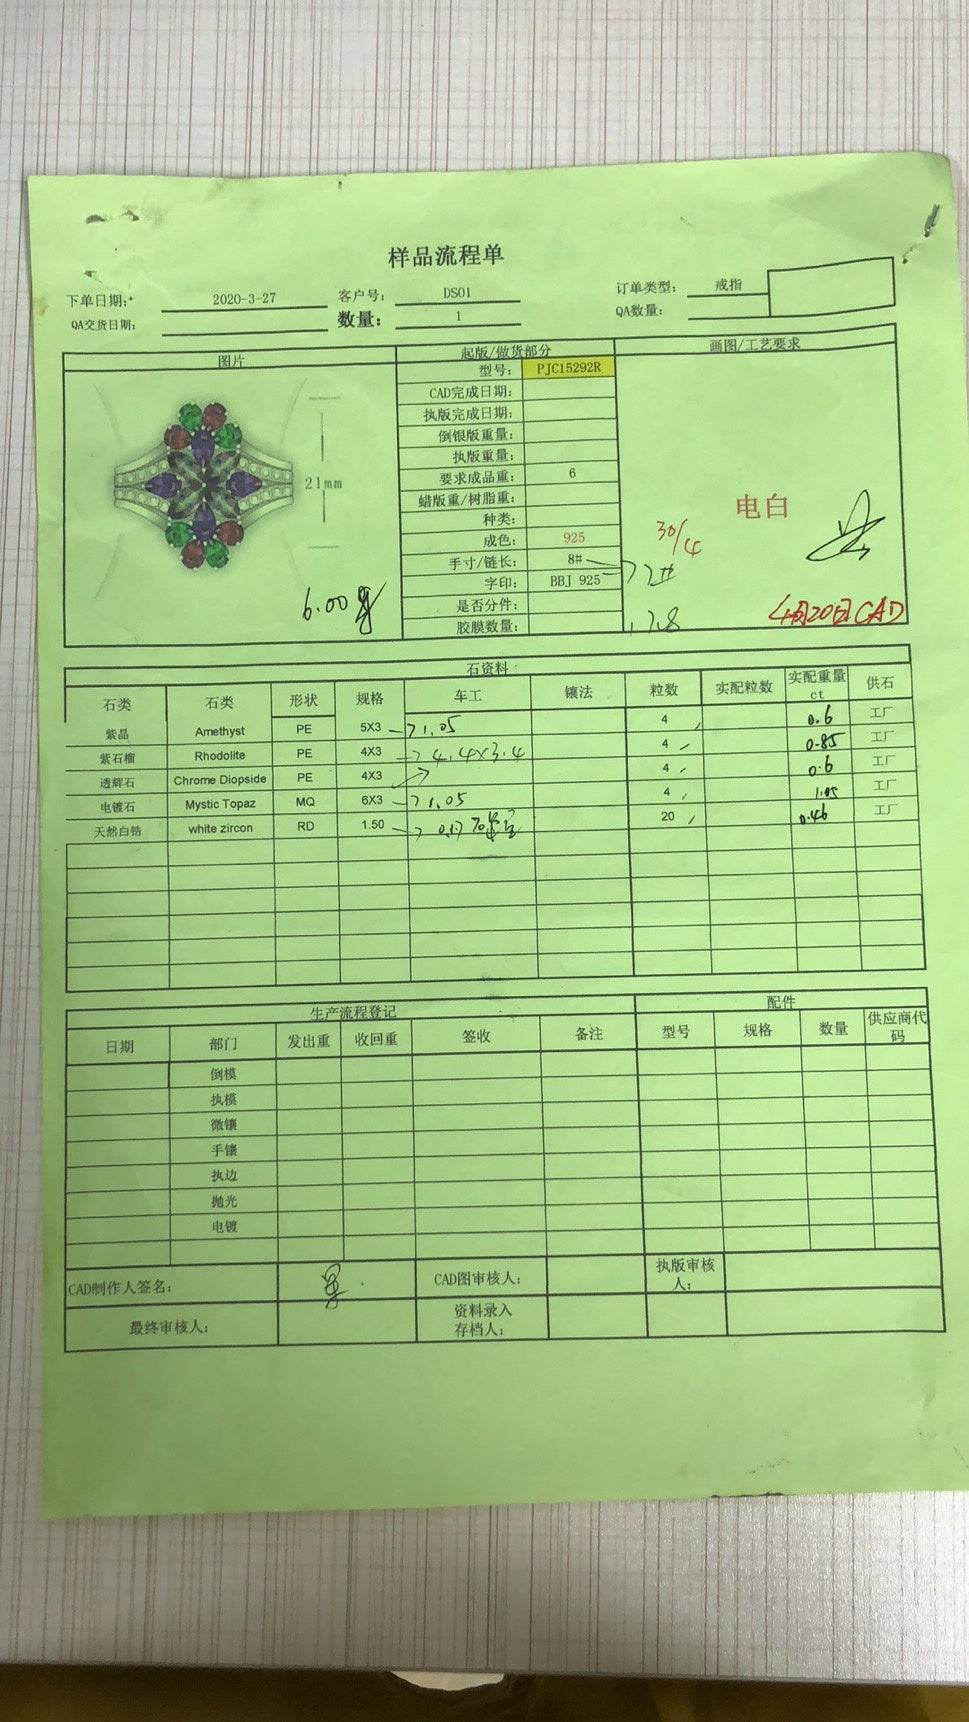 样品流程单
下单日期:* 2020-3-27 客户号: DS01 订单类型: 戒指
QA交货日期: 数量: 1 QA数量:
图片 起版/做货部分 画图/工艺要求
型号: PJC15292R
CAD完成日期:
执版完成日期:
倒银版重量:
执版重量:
要求成品重: 6
21mm
蜡版重/树脂重:
电白
种类:
成色: 925
30/4
手寸/链长: 8#
字印: BBJ 925
是否分件:
胶膜数量:
6.00
4月20日CAD
石资料
石类 石类 形状 规格 车工 镶法 粒数 实配粒数 实配重量ct 供石
紫晶 Amethyst PE 5X3 →1.05 4 0.6 工厂
紫石榴 Rhodolite PE 4X3 →4.4X3.4 4 0.85 工厂
透辉石 Chrome Diopside PE 4X3 4 0.6 工厂
电镀石 Mystic Topaz MQ 6X3 →1.05 4 1.05 工厂
天然白锆 white zircon RD 1.50 20 0.46 工厂
生产流程登记 配件
日期 部门 发出重 收回重 签收 备注 型号 规格 数量 供应商代码
倒模
执模
微镶
手镶
执边
抛光
电镀
CAD制作人签名: CAD图审核人: 执版审核人:
最终审核人: 资料录入存档人: